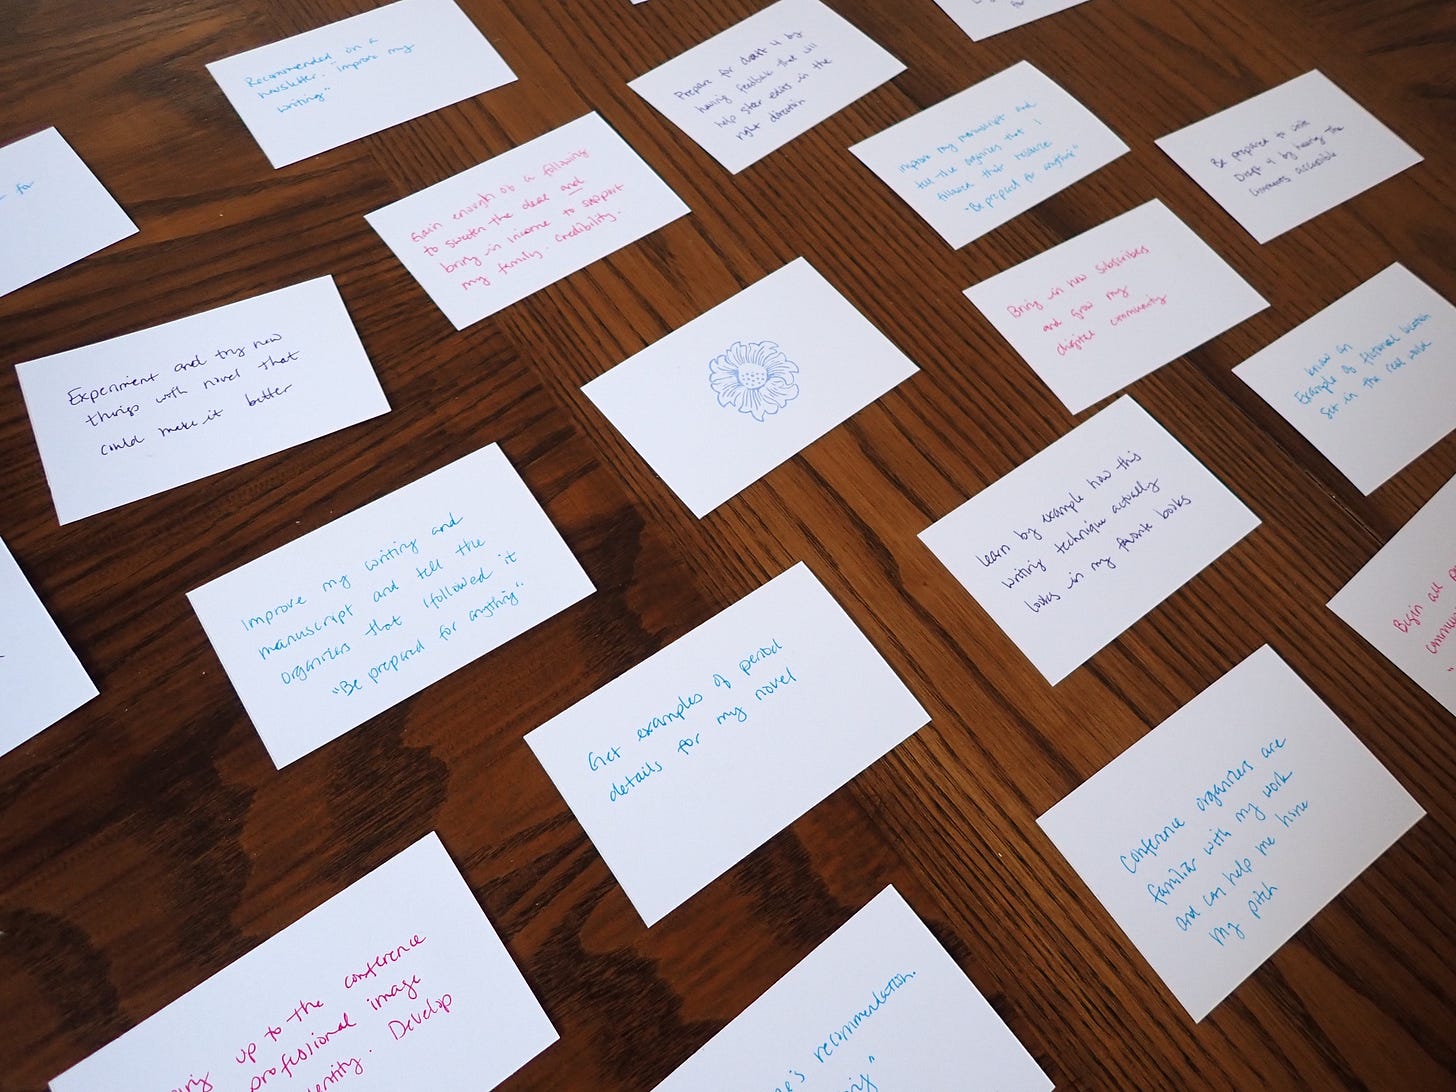 Recommended on a
newsletter. "Improve my
writing"
Prepare for draft 4 by
having feedback that will
help steer edits in the
right direction
for
Improve my manuscript and
tell the organizers that I
followed their
"Be prepared for anything"
Be prepared to write
Draft 4 by having the
comments accessible
for
Gain enough of a following
to sweeten the deal and
bring in income to support
my family. Credibility.
Bring in new subscribers
and grow my
digital community
know an
Example of fictional location
set in the real world
Experiment and try new
things with novel that
could make it better
learn by example how this
writing technique actually
looks in my favorite books
Improve my writing and
manuscript and tell the
organizers that I followed it
"Be prepared for anything"
Begin
Get examples of period
details for my novel
Conference organizers are
familiar with my work
and can help me hone
my pitch
up to the conference
professional image
Develop
recommendation.